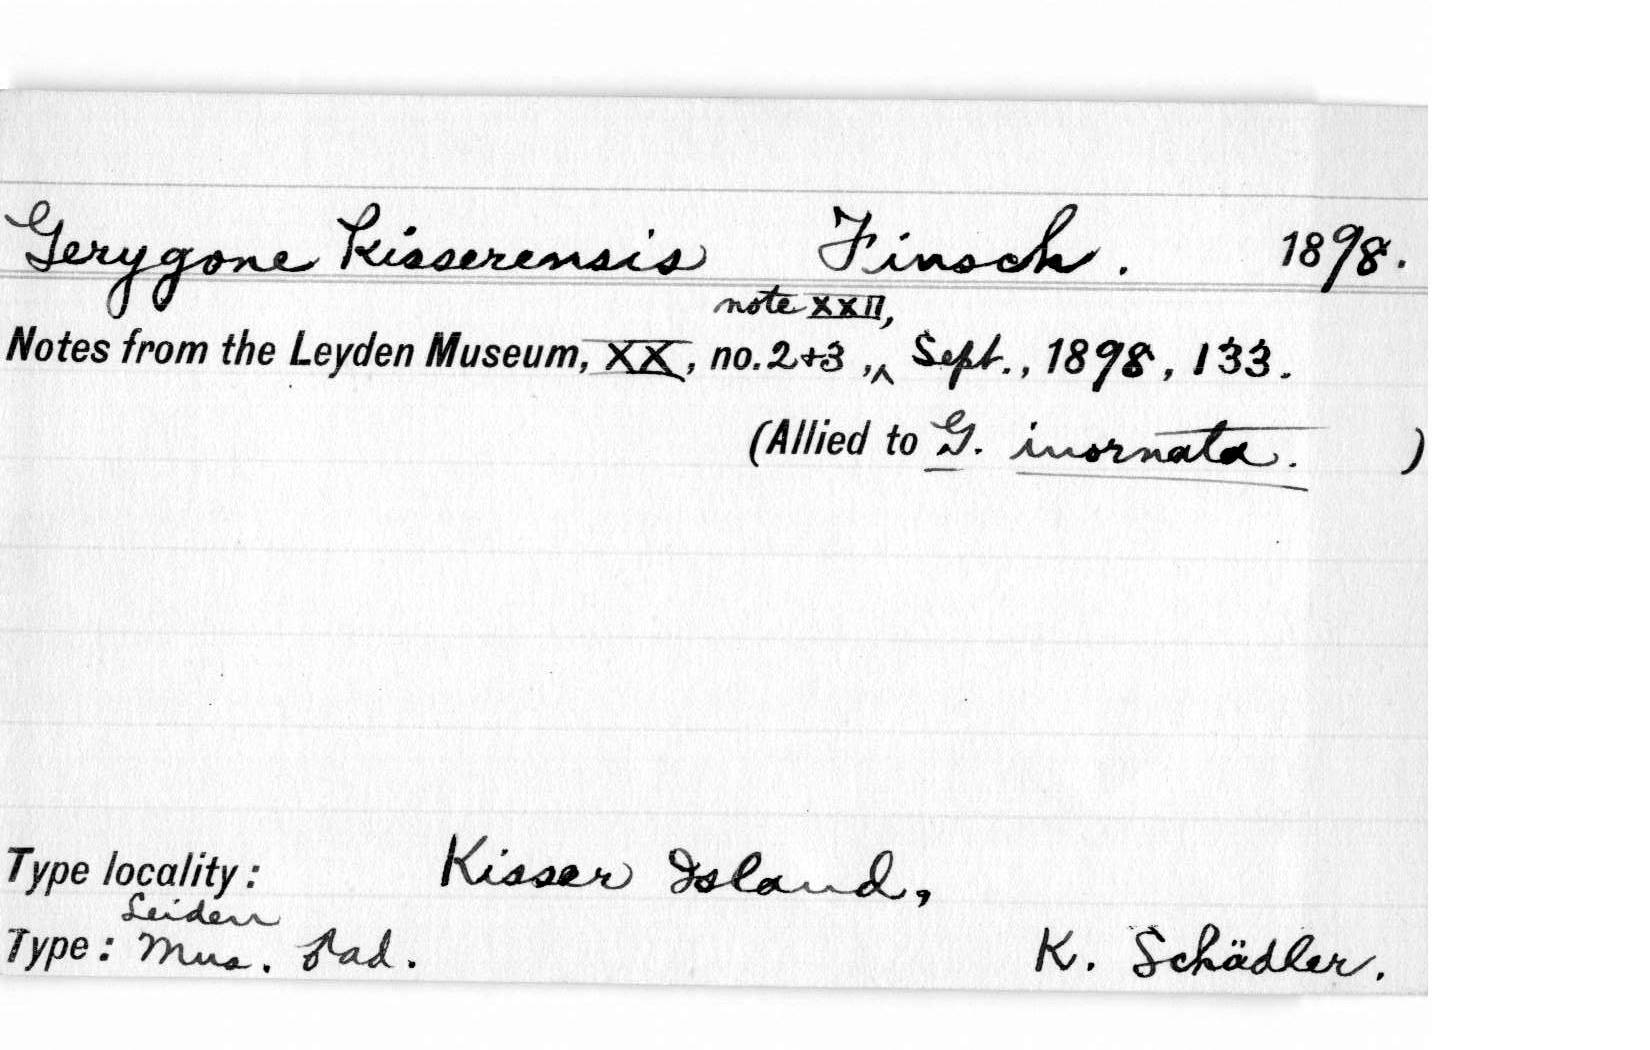 Gerygone kisserensis Finsch. 1898.
note XXII,
Notes from the Leyden Museum, XX, no. 2+3, Sept., 1898, 133.
(Allied to G. inornata. )
Type locality: Kisser Island,
Leiden
Type: Mus. K. Schädler.